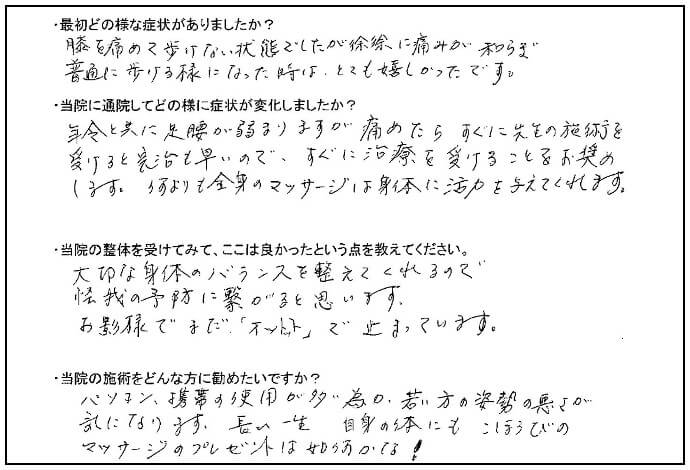 ・最初どの様な症状がありましたか？
膝を痛めて歩けない状態でしたが徐徐に痛みが和らぎ
普通に歩ける様になった時は、とても嬉しかったです。
・当院に通院してどの様に症状が変化しましたか？
年令と共に足腰が弱まりますが痛めたらすぐに先生の施術を
受けると完治も早いので、すぐに治療を受けることをお奨め
します。何よりも全身のマッサージは身体に活力を与えてくれます。
・当院の整体を受けてみて、ここは良かったという点を教えてください。
大切な身体のバランスを整えてくれるので
怪我の予防に繋がると思います。
お影様でまだ、「」で止まっています。
・当院の施術をどんな方に勧めたいですか？
パソコン、携帯の使用が多い為か、若い方の姿勢の悪さが
気になります。長い一生 自身の体にも ごほうびの
マッサージのプレゼントは如何かな！